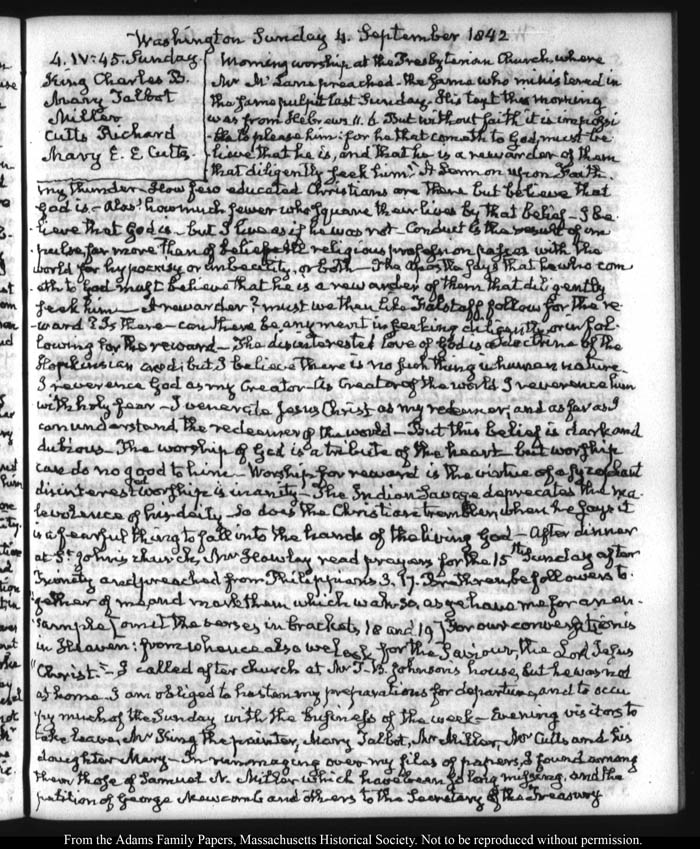 Washington Sunday 4. September 1842
4. IV:45. Sunday
King Charles B.
Mary Talbot
Miller
Cutts Richard
Mary E. E Cutts.
Morning worship at the Presbyterian Church where
Mr preached. the same who ministered in
the same pulpit last Sunday. His text this morning
was from Hebrews 11. 6. But without faith it is impossi
-ble to please him: for he that cometh to God, must be-
lieve that he is, and that he is a rewarder of them
that diligently seek him." A Sermon upon Faith.
my thunder. How few educated Christians are there but believe that
God is. Alas! how much fewer who square their lives by that belief. I be-
lieve that God is. but I live as if he was not. Conduct is the result of im
pulse far more than of belief. religious profession passes with the
world for hypocrisy or imbecility, or both. The Apostle says that he who com
eth to God must believe that he is a rewarder of them that diligently
seek him. A rewarder? must we then like Falstaff follow for the re-
ward? Is there can there be any merit in seeking diligently, or in fol
lowing for the reward. The disinterested love of God is a doctrine of the
Hopkinsian creed; but I believe there is no such thing in human nature.
I reverence God as my Creator. As Creator of the world I reverence him
with holy fear. I venerate Jesus Christ as my redeemer; and as far as I
can understand, the redeemer of the world. But this belief is dark and
dubious. The worship of God is a tribute of the heart but worship
can do no good to him. Worship for reward is the virtue of a sycophant
disinterested worship is inanity. The Indian Savage deprecates the ma-
levolence of his deity. So does the Christian tremble when he says it
is a fearful thing to fall into the hands of the living God. After dinner
at St. John's church, Mr Hawley read prayers for the 15th Sunday after
Trinity and preached from Philippians 3. 17. Brethren be followers to-
gether of me and mark them which walk so, as ye have me for an en-
sample [omit the verses in brackets, 18 and 19] For our conversation is
in Heaven: from whence also we look for the Saviour, the Lord Jesus
Christ." I called after church at Mr T. B. Johnson's house, but he was not
at home. I am obliged to hasten my preparations for departure, and to occu
py much of the Sunday with the business of the week. Evening visitors to
take leave, Mr King the painter, Mary Talbot, Mr Miller, Mr Cutts and his
daughter Mary. In rummaging over my files of papers, I found among
them those of Samuel N. Miller which have been so long missing, and the
petition of George Newcomb and others to the Secretary of the Treasury
From the Adams Family Papers, Massachusetts Historical Society. Not to be reproduced without permission.